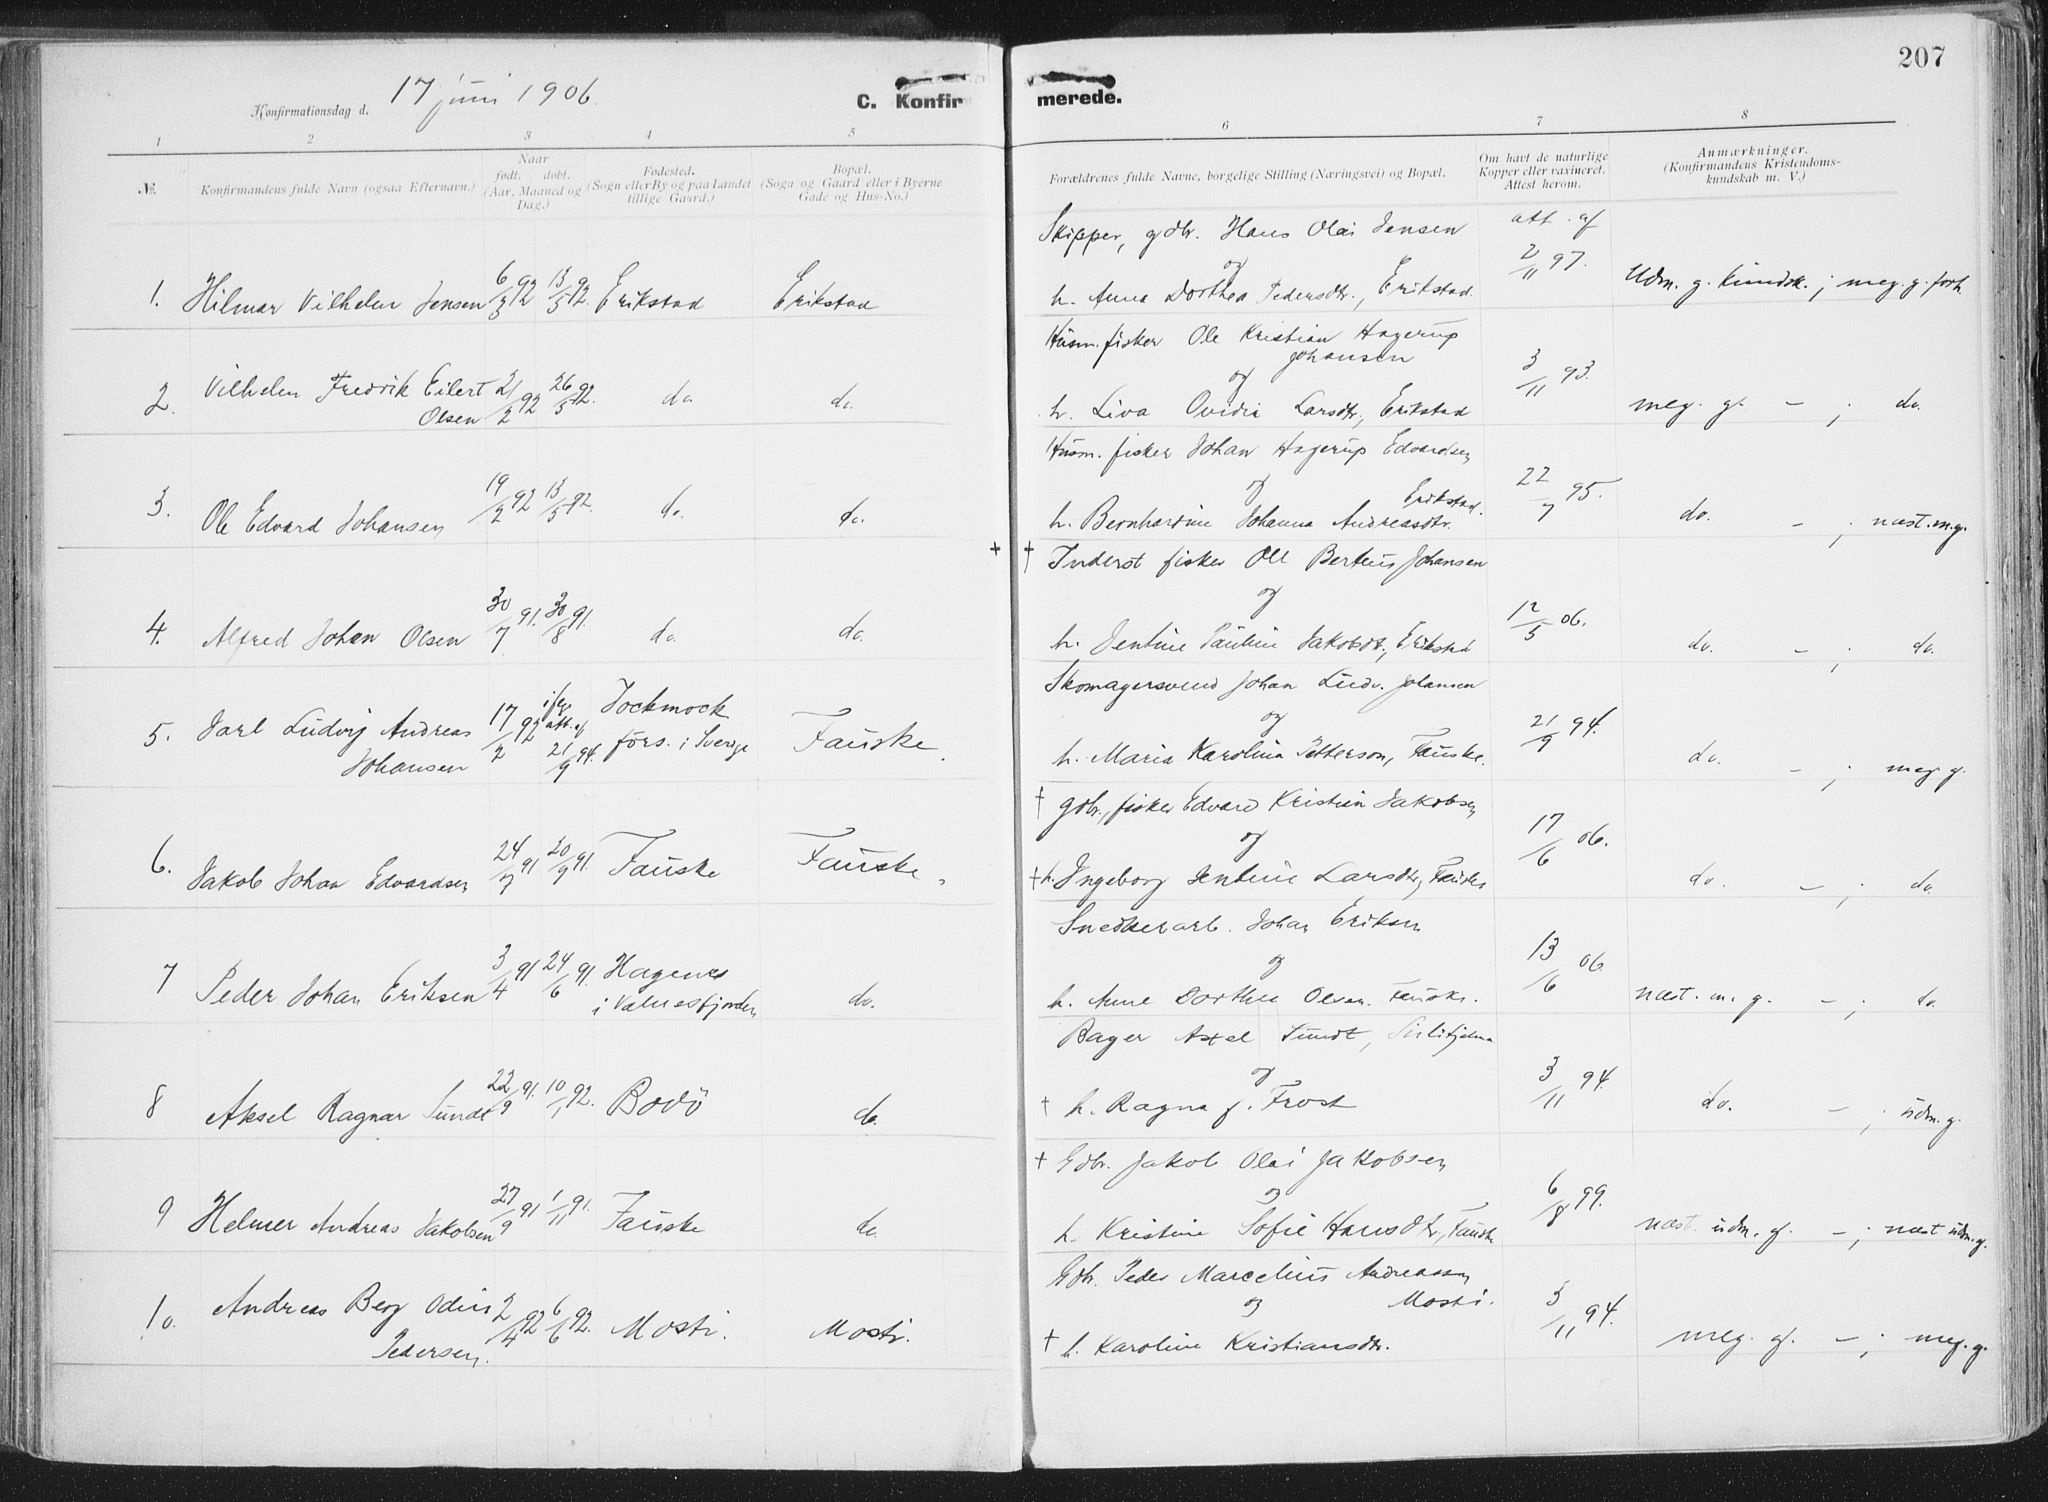 207
Konfirmationsdag d. 17 juni 1906.
C. Konfirmerede.
1 2 3 4 5 6 7 8
No.
Konfirmandens fulde Navn (ogsaa Efternavn.)
Naar
født. døbt.
(Aar, Maaned og
Dag.)
Fødested.
(Sogn eller By og paa Landet
tillige Gaard.)
Bopæl.
(Sogn og Gaard eller i Byerne
Gade og Hus-No.)
Forældrenes fulde Navne, borgelige Stilling (Næringsvei) og Bopæl.
Om havt de naturlige
Kopper eller vaxineret.
Attest herom.
Anmærkninger.
(Konfirmandens Kristendoms-
kundskab m. V.)
1. Hilmar Vilhelm Jensen 6/3 92 13/5 92. Erikstad Erikstad
Skipper, gdbr. Hans Olai Jensen
og
h. Anna Dorthea Pedersdtr., Erikstad.
att. af
2/11 97.
Udm. g. kundsk.; meg. g. forh.
2. Vilhelm Fredrik Eilert
Olsen 21/2 92 26/5 92. do do.
Husm. fisker Ole Kristian Hagerup
Johansen
og
h. Liva Ovidia Larsdtr., Erikstad
3/11 93.
meg. g. – ; do.
3. Ole Edvard Johansen 19/2 92 13/5 92. do. do.
Husm. fisker Johan Hagerup Edvardsen
og Erikstad.
h. Bernhardine Johanna Andreasdtr.
22/7 95.
do. – ; næst. m. g.
4. Alfred Johan Olsen 30/7 91. 30/8 91. do. do.
+ † Inderst fisker Ole Berteus Johansen
og
h. Jentine Pauline Jakobdt., Erikstad
12/5 06.
do. – ; do.
5. Jarl Ludvig Andreas
Johansen 17/2 92 ifg.
att. af
21/9 94.
Jockmock
förs. i Sverige
Fauske.
Skomagersvend Johan Ludv. Johansen
og
h. Maria Karolina Petterson, Fauske.
21/9 94.
do. – ; meg. g.
6. Jakob Johan Edvardsen 24/7 91 20/9 91. Fauske Fauske.
† gdbr., fisker Edvard Kristian Jakobsen
og
† h. Ingeborg Jentine Larsdtr., Fauske
17/6 06.
do. – ; do.
7 Peder Johan Eriksen 3/4 91 24/6 91. Hagenes
i Valnesfjorden do.
Snedkerarb. Johan Eriksen
og
h. Anne Dorthea Olsen. Fauske.
13/6 06
næst. m. g. – ; do.
8 Aksel Ragnar Sundt 22/9 91. 10/1 92. Bodö do.
Bager Axel Sundt, Sulitjelma
og
† h. Ragna f. Frost
3/11 94.
do. – ; udm. g.
9 Helmer Andreas Jakobsen 27/9 91 1/11 91. Fauske do.
† Gdbr. Jakob Olai Jakobsen
og
h. Kristine Sofie Hansdtr., Fauske
6/8 99.
næst. udm. g. – ; næst udm. g.
10. Andreas Berg Odin
Pedersen. 2/4 92 6/6 92. Mosti. Mosti.
Gdbr. Peder Marcelius Andreassen
og Mosti.
† h. Karoline Kristiansdtr.
3/11 94.
meg. g. – ; meg. g.